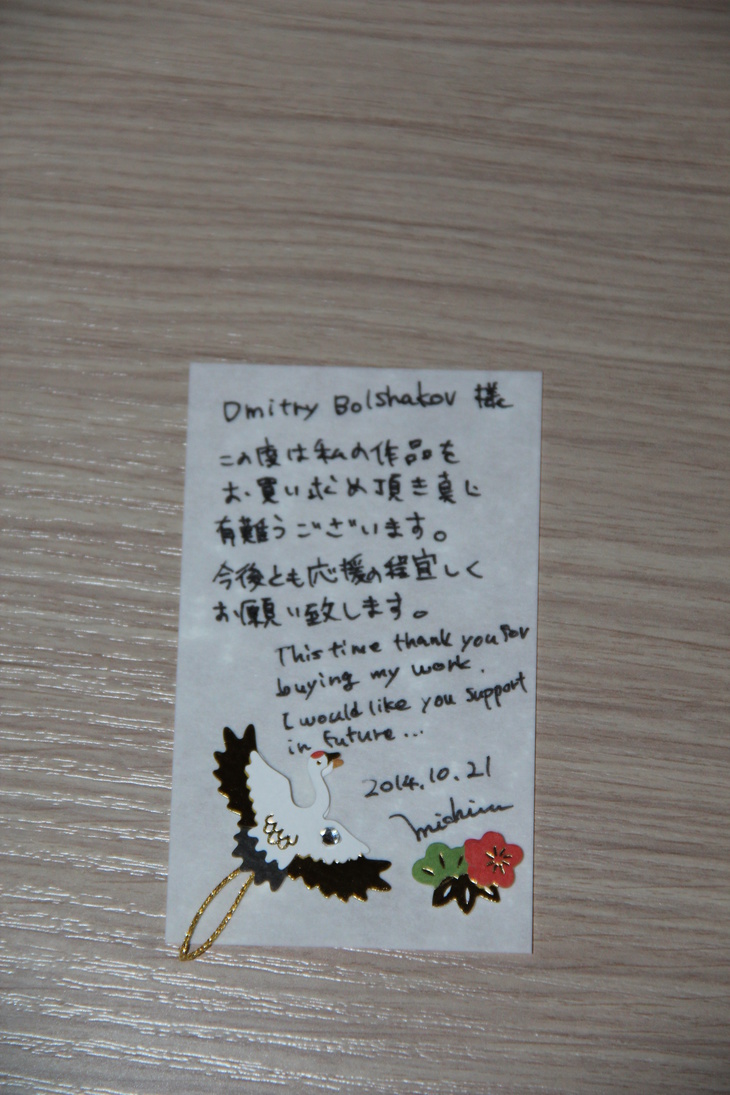 Dmitry Bolshakov 様
この度は私の作品を
お買い求め頂き真に
有難うございます。
今後とも応援の程宜しく
お願い致します。
This time thank you for
buying my work.
I would like you support
in future...
2014.10.21